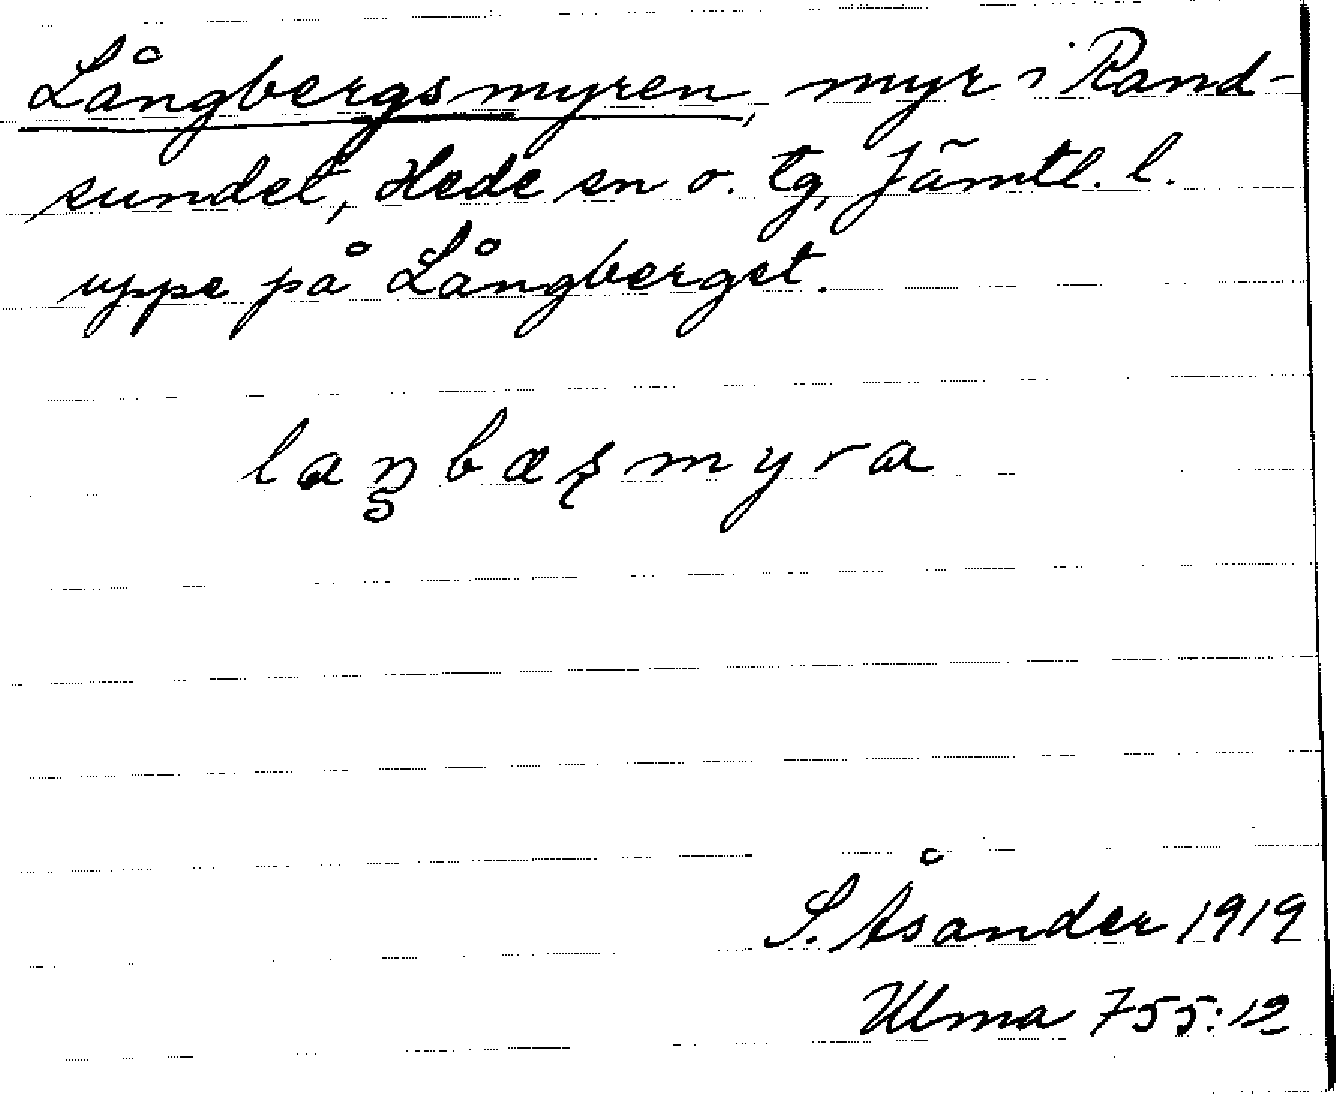 Långbergsmyren, myr i Rand-
sundet, Hede sn o. tg, Jämtl. l.
uppe på Långberget.
laŋbæʂmyra
S. Åsander 1919
Ulma 755:12